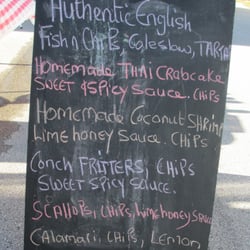 Authentic English
Fish n Chips, Coleslaw, TARTA
Homemade THAI Crabcake
SWEET & SPICY SAUCE. CHiPS
HOMEMADE COCONUT SHRIM
LIME HONEY SAUCE. CHIPS
CONCH FRITTERS, CHIPS
SWEET SPICY SAUCE.
SCALLOPS, CHIPS, LIME HONEY SAUCE
CALAMARI, CHIPS, LEMON